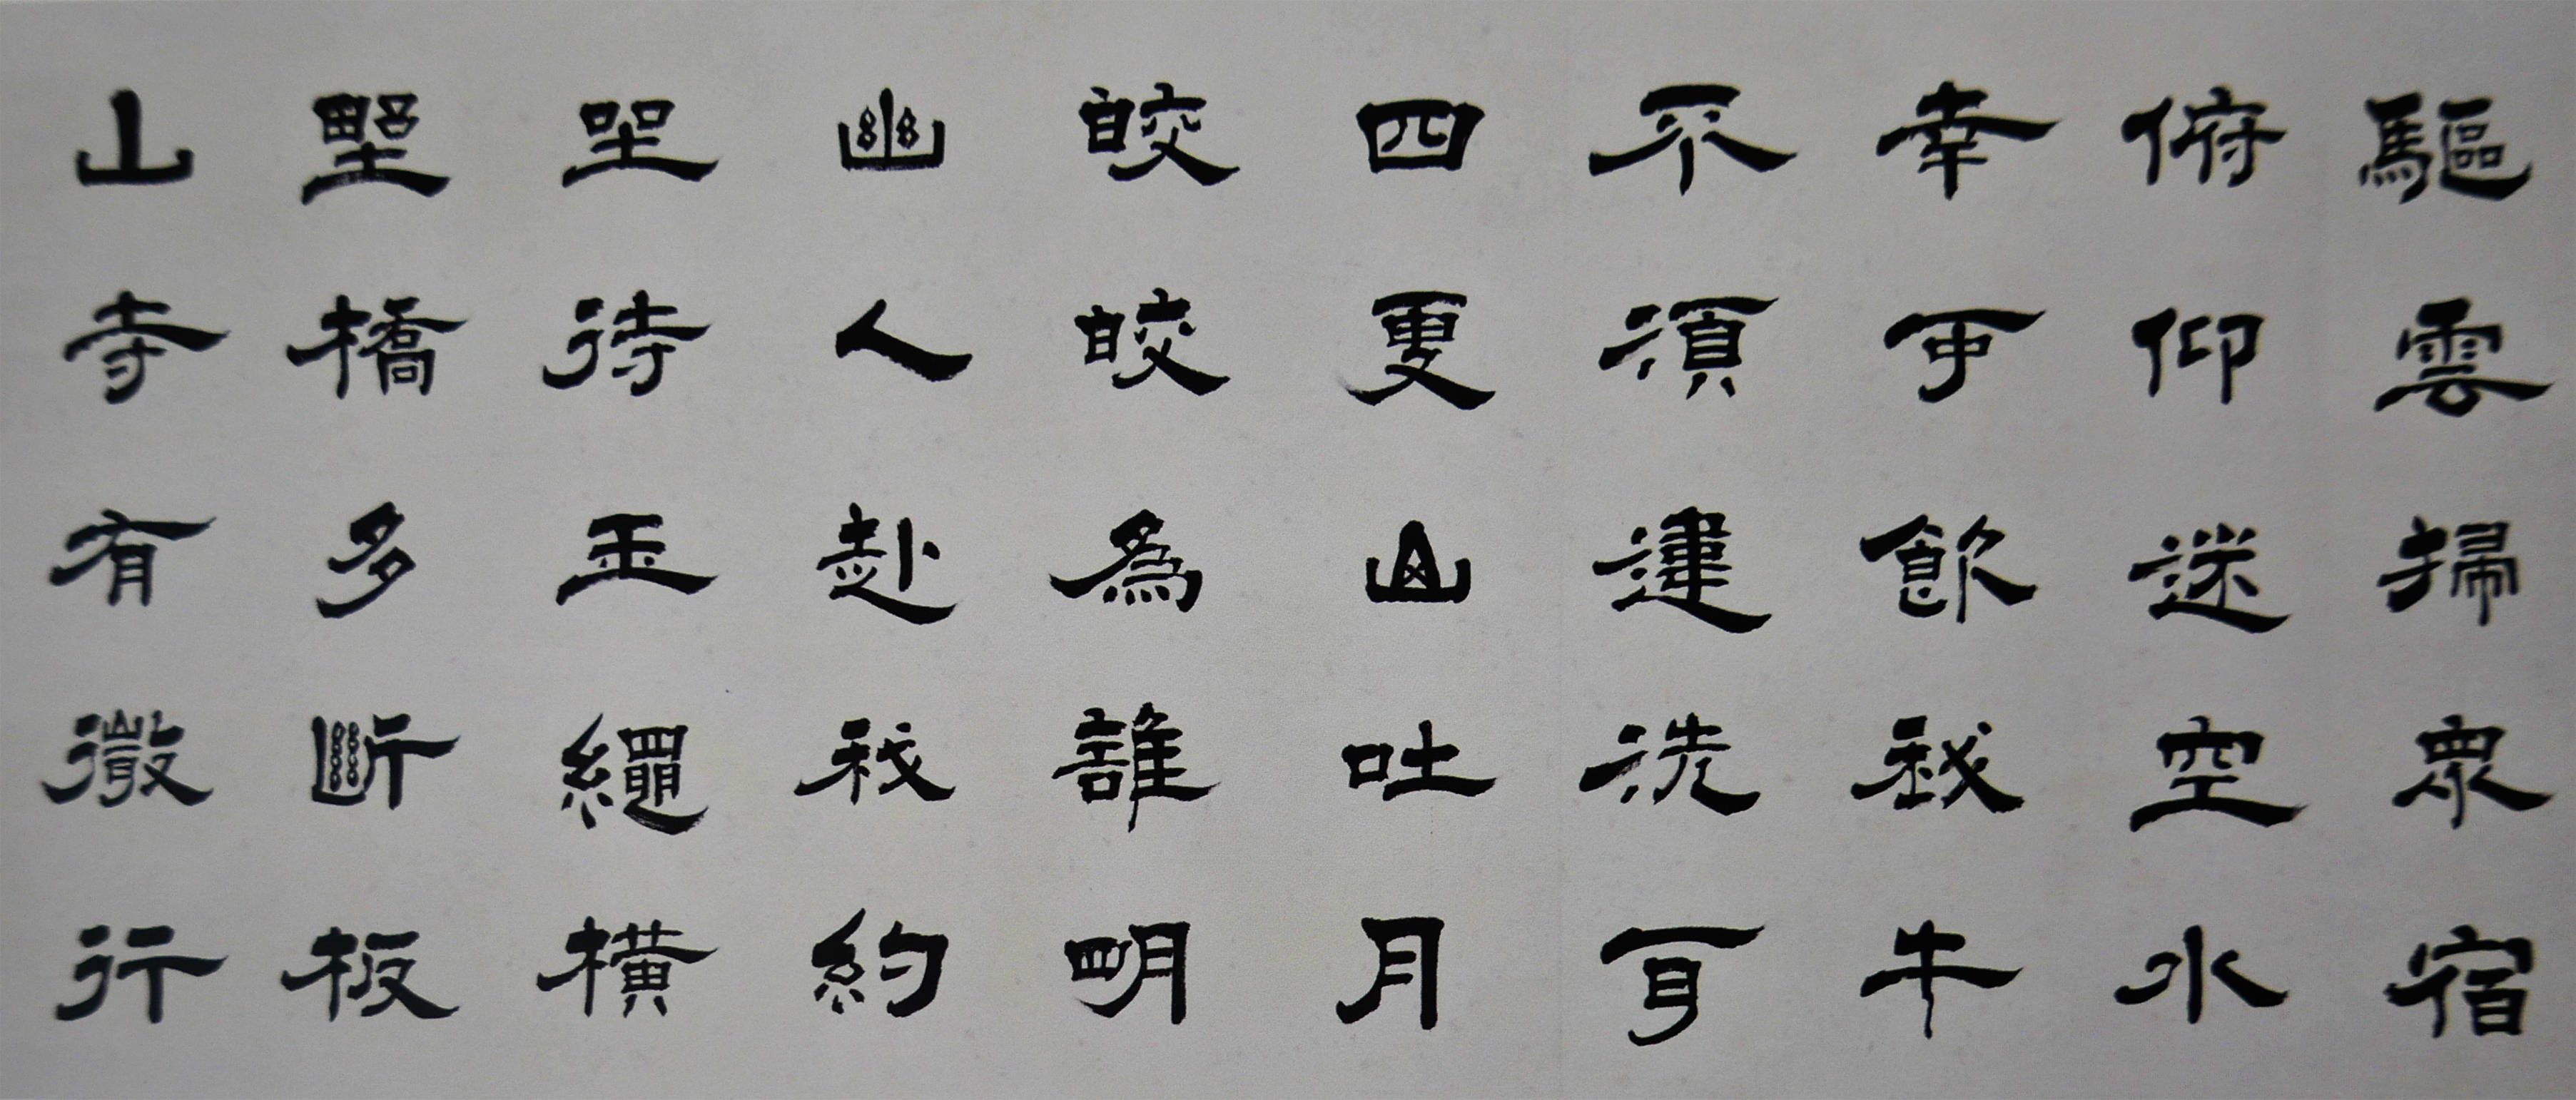 驅雲掃衆宿
俯仰迷空水
幸可飲我牛
不須遣洗耳
四更山吐月
皎皎為誰明
幽人赴我約
坐待玉繩橫
野橋多斷板
山寺有微行